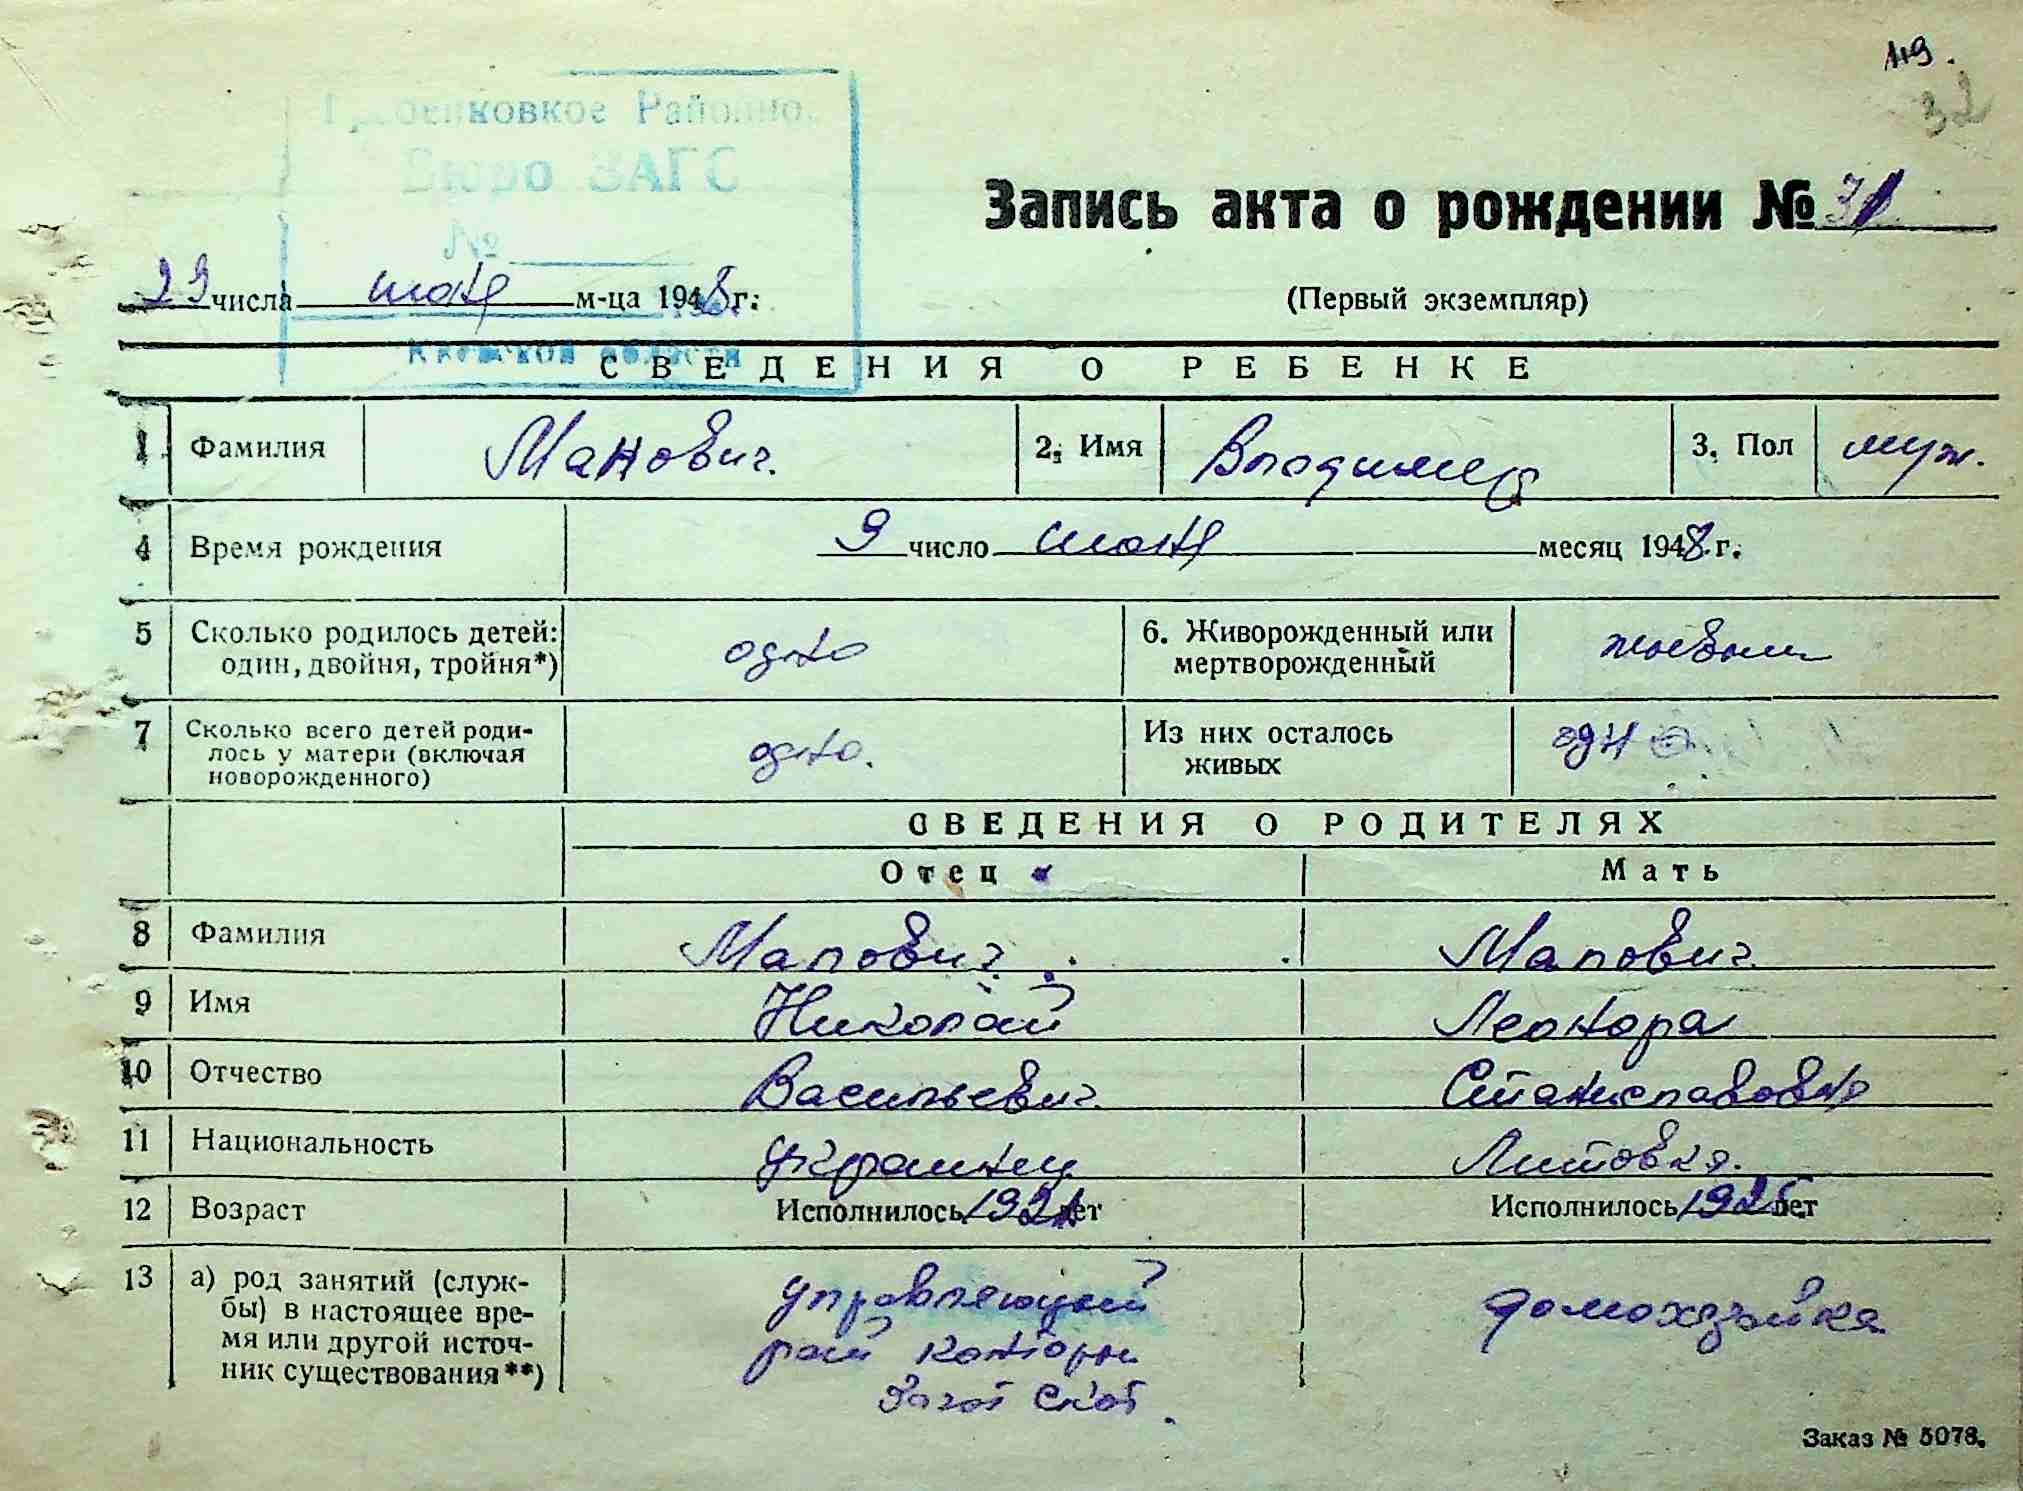 119.
32
Районно
Бюро ЗАГС
№
Киевской области
Запись акта о рождении № 31
(Первый экземпляр)
29 числа июня м-ца 1948 г.
СВЕДЕНИЯ О РЕБЕНКЕ
1 Фамилия Манович. 2. Имя Владимир 3. Пол муж.
4 Время рождения 9 число июня месяц 1948 г.
5 Сколько родилось детей: один, двойня, тройня*) одно 6. Живорожденный или мертворожденный живым
7 Сколько всего детей родилось у матери (включая новорожденного) одно. Из них осталось живых одн
СВЕДЕНИЯ О РОДИТЕЛЯХ
Отец Мать
8 Фамилия Малович. Малович
9 Имя Николай Леонора
10 Отчество Васильевич Станиславовна
11 Национальность украинец Литовка.
12 Возраст Исполнилось 1921 лет Исполнилось 1925 лет
13 а) род занятий (служ- управляющий домохозяйка
бы) в настоящее вре- рай конторы
мя или другой источ- Загот Скот.
ник существования**)
Заказ № 5078.